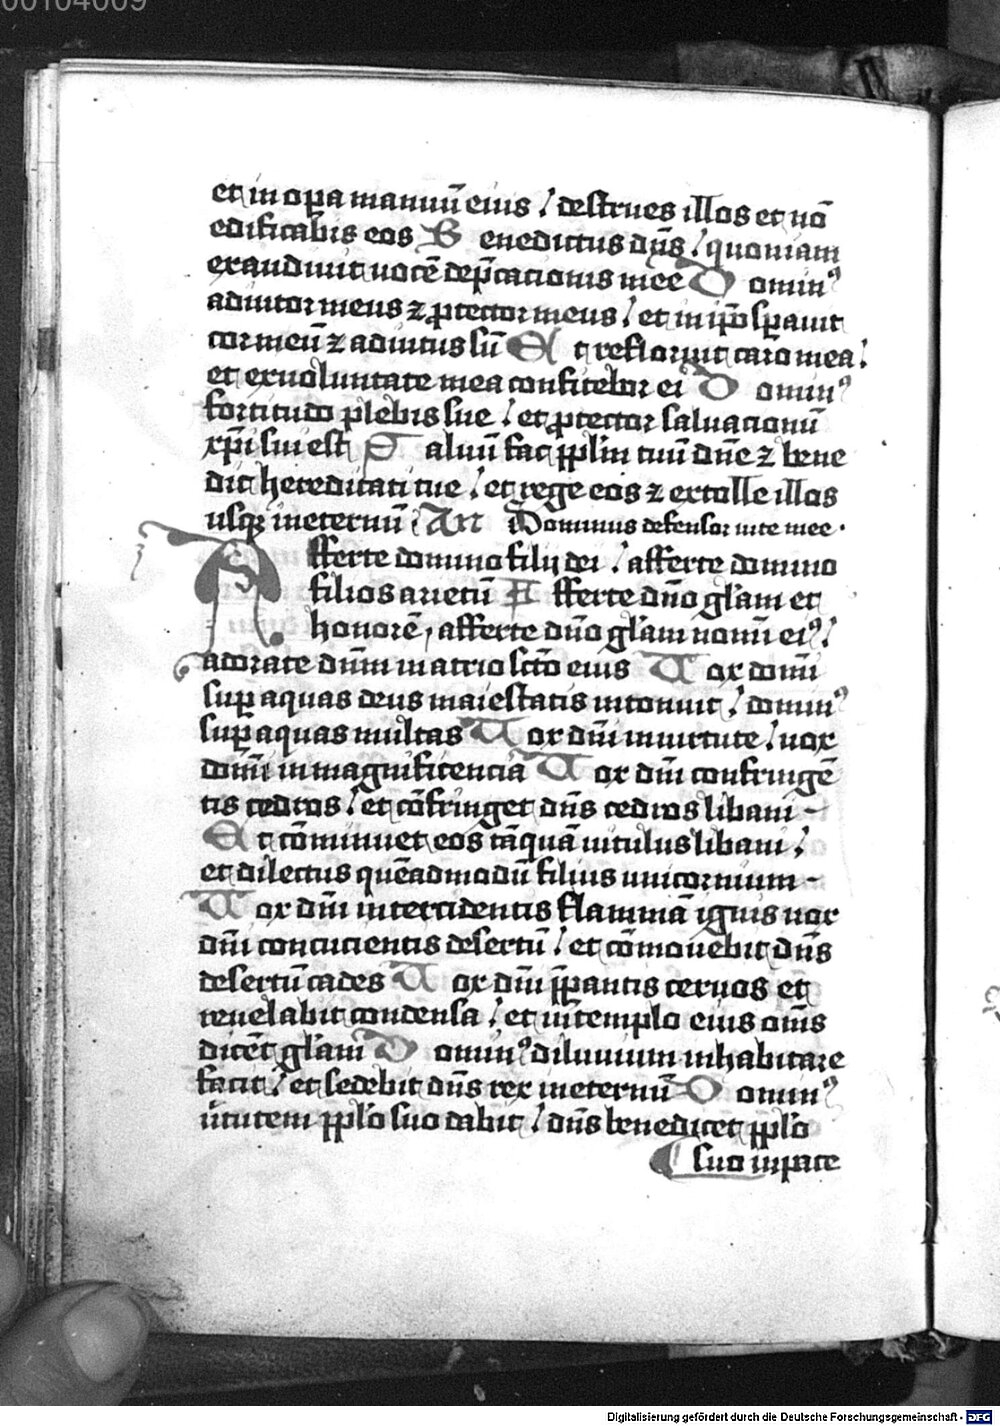 00104009
et in op̄a manuū eius / destrues illos et nō
edificabis eos B enedictus dn̄s / quoniam
exaudiuit uocē dep̄cationis mee D omin⁹
adiutor meus ⁊ ꝓtector meus / et in ip̄o sꝑauit
cor meū ⁊ adiutus sū Et refloruit caro mea /
et ex uoluntate mea confitebor ei D omin⁹
fortitudo plebis sue / et ꝓtector saluacionū
xp̄i sui est S aluū fac pp̄lm tuū dn̄e ⁊ bene
dic hereditati tue / et rege eos ⁊ extolle illos
usqꝫ in eternū An Dominus defensor uite mee ·
A fferte domino filij dei / afferte domino
filios arietū A fferte dn̄o gl̄am et
honorē , afferte dn̄o gl̄am nomī ei⁹ /
adorate dn̄m in atrio sc̄to eius U ox domī
suꝑ aquas deus maiestatis intonuit / domin⁹
suꝑ aquas multas U ox dn̄i in uirtute / uox
domī in magnificencia U ox dn̄i confringē
tis cedros / et cōfringet dn̄s cedros libani -
Et cōminuet eos tāquā uitulus libani /
et dilectus quēadmodū filius unicornium -
U ox dn̄i intercidentis flammā ignis uox
dn̄i concucientis desertū / et cōmouebit dn̄s
desertū cades U ox dn̄i p̄parantis ceruos et
reuelabit condensa / et in templo eius om̄s
dicēt gl̄am D omin⁹ diluuium inhabitare
facit / et sedebit dn̄s rex in eternū D omin⁹
u̇tutem pp̄lo suo dabit / dn̄s benedicet pp̄lo
suo in pace
Digitalisierung gefördert durch die Deutsche Forschungsgemeinschaft - DFG